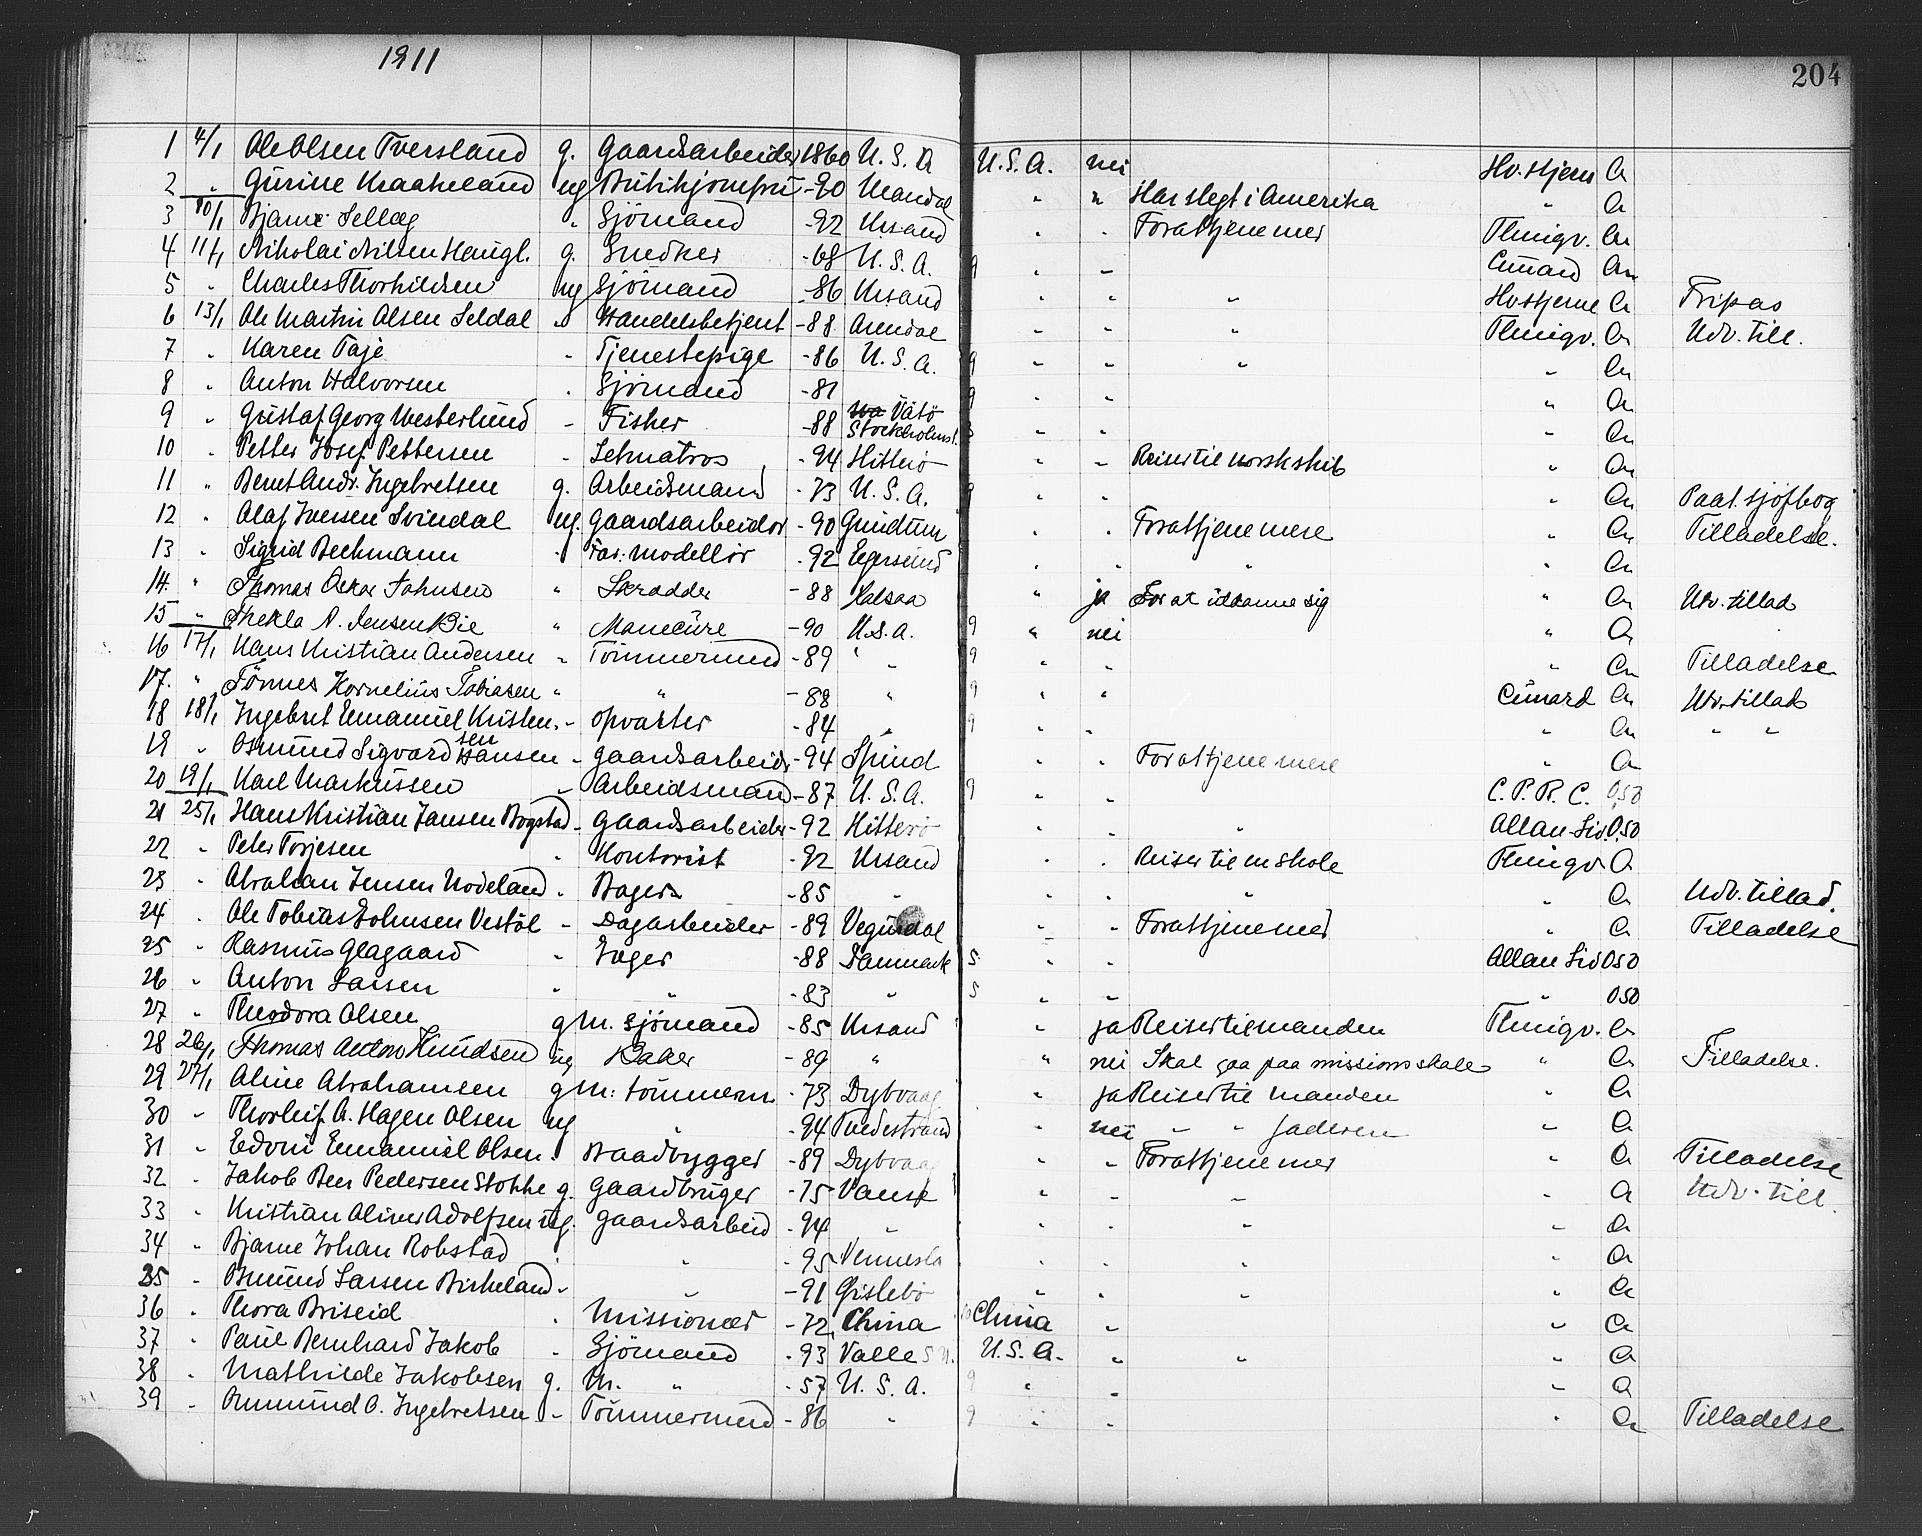 1911
204
1 4/1 Ole Olsen Tversland g. Gaardsarbeider 1860 U.S.A U.S.A. nei Hv. stjern a
2 " Gurine Kraakeland ug Butikjomfru -90 Mandal " " Har slegt i Amerika " a
3 10/1 Bjarne Selleg " Sjömand -92 Krsand " " For at tjene mer Thingv. a
4 11/1 Nikolai Nilsen Haugl. g. Snedker -68 U.S.A. 9 " " Cunard a
5 " Charles Thorkildsen ug Sjömand -86 Krsand " " " Hvstjerne a Fripas
6 13/1 Ole Martin Olsen Seldal " Handelsbetjent -88 Arendal " " " Thingv. a Udv. till.
7 " Karen Faje " Tjenestepige -86 U.S.A. 9 " " " " a
8 " Anton Halvorsen " Sjömand -81 9 " " " a
9 " Gustaf Georg Westerlund " Fisker -88 Vätö Stockholmsl. " " " a
10 " Petter Josef Pettersen " Letmatros -94 Hitterö " " Reiser til norsk skib " a
11 " Bernt Andr. Ingebretsen g. Arbeidsmand -73 U.S.A. 9 " " " a Paat. sjöfbog
12 " Olaf Iversen Svindal ug. Gaardsarbeider -90 " " For at tjene mere " a Tilladelse.
13 " Sigrid Beckmann " modellör -92 Egersund " " " " a
14. " Thomas Oskar Johnsen " Skrædder -88 Halsaa " ja For at uddanne sig " a Utv. tillad
15 " Thekla N. Jensen Bie " Manecure -90 U.S.A. 9 " nei " a
16 17/1 Hans Kristian Andersen " Tömmermand -89 " " 9 " " " a Tilladelse
17. " Tönnes Kornelius Tobiasen " " -88 " 9 " " Cunard a Utv. tillad
18 18/1 Ingebret Emanuel Kristensen " opvarter -84 " 9 " " " a " "
19 " Osmund Sigvard Hansen " gaardsarbeider -94 Spind " " For at tjene mere " a
20 19/1 Karl Markussen " Arbeidsmand -87 U.S.A. 9 " " C.P.R.C. 0,50
21 25/1 Hans Kristian Jansen Bogstad " gaardsarbeider -92 Hitterö " " " Allan Lin 0.50
22 " Peter Torjesen " Kontorist -92 Krsand " " Reiser til en skole Thingv. a
23 " Abraham Jensen Nodeland " Bager -85 " " " " " a Udv. tillad.
24 " Ole Tobias Johnsen Vestöl " Dagarbeider -89 Vegusdal " " For at tjene mer " a Tilladelse
25 " Rasmus Glagaard " Jæger -88 Danmark 5 " " Allan Lin 050
26 " Anton Larsen " " -83 " 5 " " " 050
27 " Theodora Olsen g m. sjömand -85 Krsand " ja Reiser til manden Thingv. a
28 26/1 Thomas Anton Knudsen ug Baker -89 " " nei Skal gaa paa missions skole " a Tilladelse.
29 27/1 Aline Abrahamsen g m: tömmerm. -73 Dybvaag " ja Reiser til manden " a
30 " Thorleif A. Hagen Olsen ug " -94 Tvedestrand " nei " " faderen " a
31 " Edvin Emanuel Olsen " Baadbygger -89 Dybvaag " " For at tjene mer " a Tilladelse
32 " Jakob Ben Pedersen Stokke g. gaardbruger -75 Vanse " " " " a Udv. till.
33 " Kristian Oliver Adolfsen ug. gaardsarbeid -94 " " " " " a
34 " Bjarne Johan Robstad " " -95 Vennesla " " " " a
35 " Omund Larsen Birkeland " " -91 Öislebö " " " " a
36 " Thora Briseid " Missionær -72 China China " " a
37 " Paul Bernhard Jakob " Sjömand -93 Valle U.S.A. " " " a
38 " Mathilde Jakobsen g. M. " -57 U.S.A. 9 " " " a
39 " Ommund O. Ingebretsen " Tömmermand -86 " 9 " " " a Tilladelse